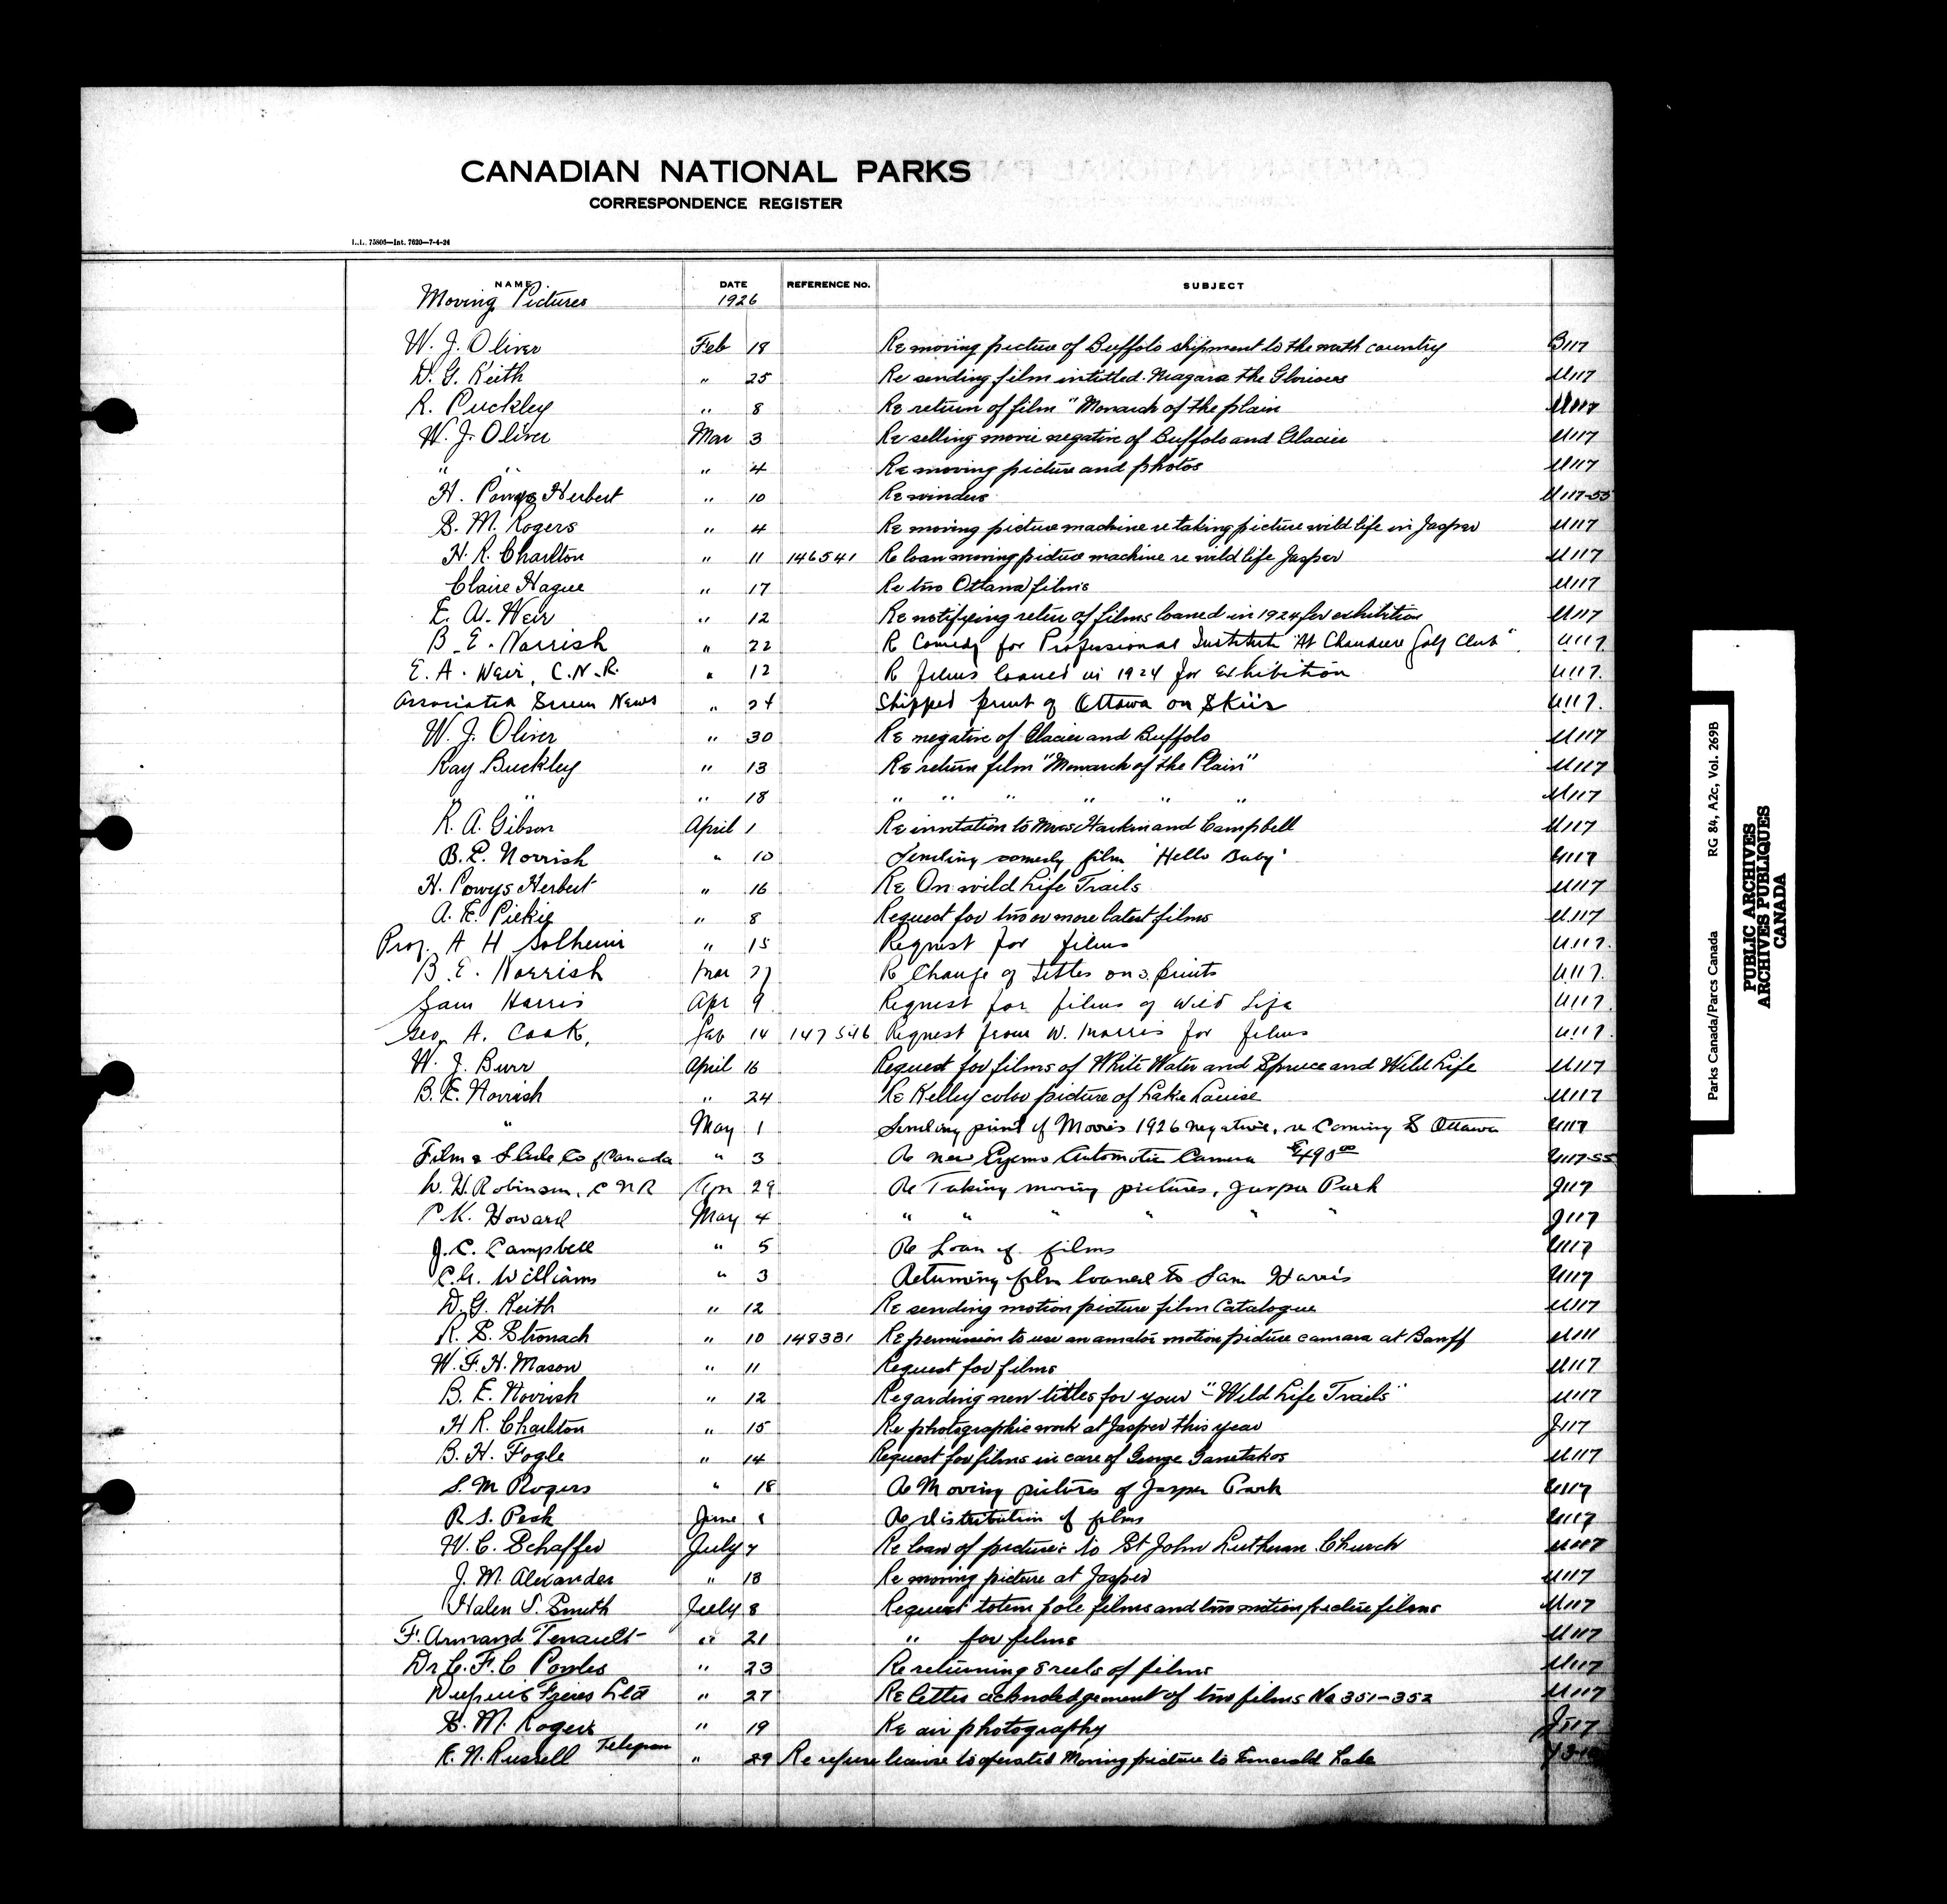 CANADIAN NATIONAL PARKS
CORRESPONDENCE REGISTER
I.L. 75806—Int. 7620—7-4-24
NAME DATE REFERENCE No. SUBJECT
Moving Pictures 1926
W. J. Oliver Feb 18 Re moving picture of Buffolo shipment to the north country B117
D. G. Keith " 25 Re sending film intitled. Niagara the Glorious U117
R. Puckley " 8 Re return of film "Monarch of the plain U117
W. J. Oliver Mar 3 Re selling movie negative of Buffolo and Glacier U117
" " " 4 Re moving picture and photos U117
H. Powys Herbert " 10 Re winders U117-55
S. M. Rogers " 4 Re moving picture machine re taking picture wild life in Jasper U117
H. R. Charlton " 11 146541 Re loan moving picture machine re wild life Jasper U117
Claire Hague " 17 Re two Ottawa films U117
E. A. Weir " 12 Re notifying retur of films loaned in 1924 for exhibition U117
B. E. Norrish " 22 R Comedy for Professional Institute "At Chaudiere Golf Club". U117
E. A. Weir, C.N.R. " 12 R films loaned in 1924 for exhibition U117.
Associated Screen News " 24 Shipped print of Ottawa on Skiis U117.
W. J. Oliver " 30 Re negative of Glacier and Buffolo U117
Ray Buckley " 13 Re return film "Monarch of the Plain" U117
" " " 18 " " " " " " U117
R. A. Gibson April 1 Re invitation to Harkin and Campbell U117
B. E. Norrish " 10 Sending comedy film 'Hello Baby' U117
H. Powys Herbert " 16 Re On wild Life Trails U117
A. E. " 8 Request for two or more latest films U117
Prof. A H Solheim " 15 Request for films U117.
B. E. Norrish Mar 27 R Change of Titles on 3 prints U117.
Sam Harris Apr 9 Request for films of Wild Life U117
Geo. A. Cook, 14 147546 Request from W. Morris for films U117.
W. J. Burr April 16 Request for films of White Water and Spruce and Wild Life U117
B. E. Norrish " 24 Re Kelley color picture of Lake Louise U117
" May 1 Sending print of Moovies 1926 negative, re Coming to Ottawa U117
Film & Slide Co of Canada " 3 Re new Eyemo Automatic Camera U117-55
W. H. Robinson, C N R Apr 29 Re Taking moving pictures, Jasper Park J117
P. K. Howard May 4 " " " " " " J117
J. C. Campbell " 5 Re Loan of films U117
C. G. Williams " 3 Returning film loaned to Sam Harris U117
D. G. Keith " 12 Re sending motion picture film Catalogue U117
R. S. Stronach " 10 148331 Re permission to use an amator motion picture camara at Banff U111
W. F. H. Mason " 11 Request for films U117
B. E. Norrish " 12 Regarding new titles for your "Wild Life Trails" U117
H R. Charlton " 15 Re photographic work at Jasper this year J117
B. H. Fogle " 14 Request for films in care of George Ganetakos U117
S. M Rogers " 18 Re Moving pictures of Jasper Park U117
R S. Peck June 1 Re distribution of films U117
W. C. Schaffer July 7 Re loan of pictures to St John Lutheran Church U117
J. M. Alexander " 13 Re moving picture at Jasper U117
Halen I. Smith July 8 Request totem pole films and two motion picture films U117
F. Armand Tenault " 21 " for films U117
Dr C. F. C Powles " 23 Re returning 8 reels of films U117
Dupuis Freres Ltd " 27 Re letter acknoledgement of two films No 351-352 U117
S. M. Rogers " 19 Re air photography J117
E. N. Russell Telegram " 29 Re refuse licence to operated Moving picture to Emerald Lake
Parks Canada/Parcs Canada RG 84, A2c, Vol. 269B
PUBLIC ARCHIVES
ARCHIVES PUBLIQUES
CANADA